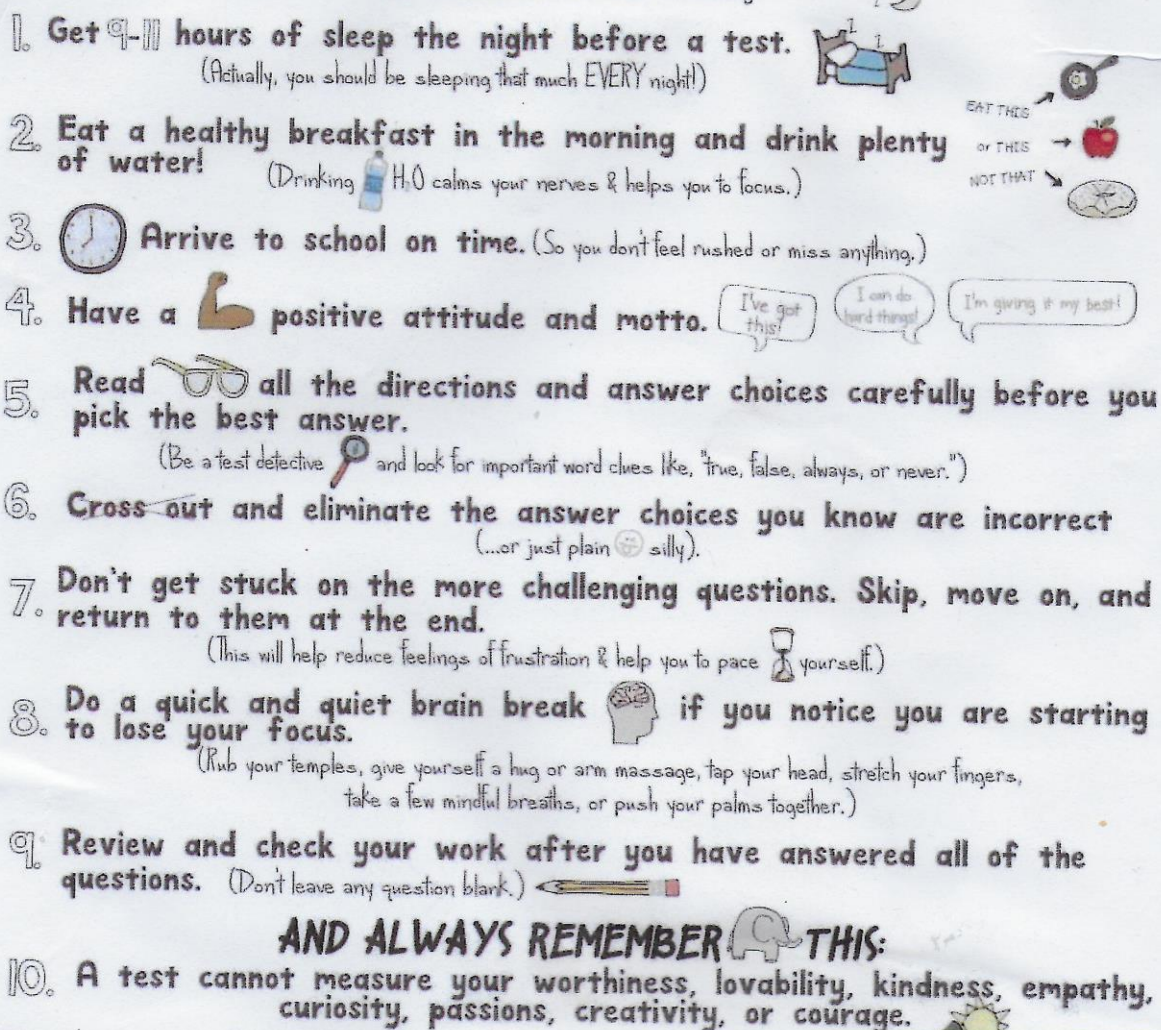 1. Get 9-11 hours of sleep the night before a test.
(Actually, you should be sleeping that much EVERY night!)
EAT THIS
2. Eat a healthy breakfast in the morning and drink plenty
or THIS
of water!
(Drinking H2O calms your nerves & helps you to focus.)
NOT THAT
3. Arrive to school on time. (So you don't feel rushed or miss anything.)
4. Have a positive attitude and motto.
I've got
this!
I can do
hard things!
I'm giving it my best!
5. Read all the directions and answer choices carefully before you
pick the best answer.
(Be a test detective and look for important word clues like, "true, false, always, or never.")
6. Cross out and eliminate the answer choices you know are incorrect
(...or just plain silly).
7. Don't get stuck on the more challenging questions. Skip, move on, and
return to them at the end.
(This will help reduce feelings of frustration & help you to pace yourself.)
8. Do a quick and quiet brain break if you notice you are starting
to lose your focus.
(Rub your temples, give yourself a hug or arm massage, tap your head, stretch your fingers,
take a few mindful breaths, or push your palms together.)
9. Review and check your work after you have answered all of the
questions. (Don't leave any question blank.)
AND ALWAYS REMEMBER THIS:
10. A test cannot measure your worthiness, lovability, kindness, empathy,
curiosity, passions, creativity, or courage.